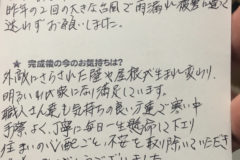 昨年の2回の大きな台風で雨漏れ被害に遭って
迷わずお願いしました。
★完成後の今のお気持ちは?
外敵にさらされた壁や屋根が生まれ変わり、
明るいわが家に大満足しています。
職人さん達も気持ちの良い方達で寒い中
手際よく、丁寧に毎日一生懸命して下さり
住まいの心配ごと、不安を取り除いていただき
ございました。